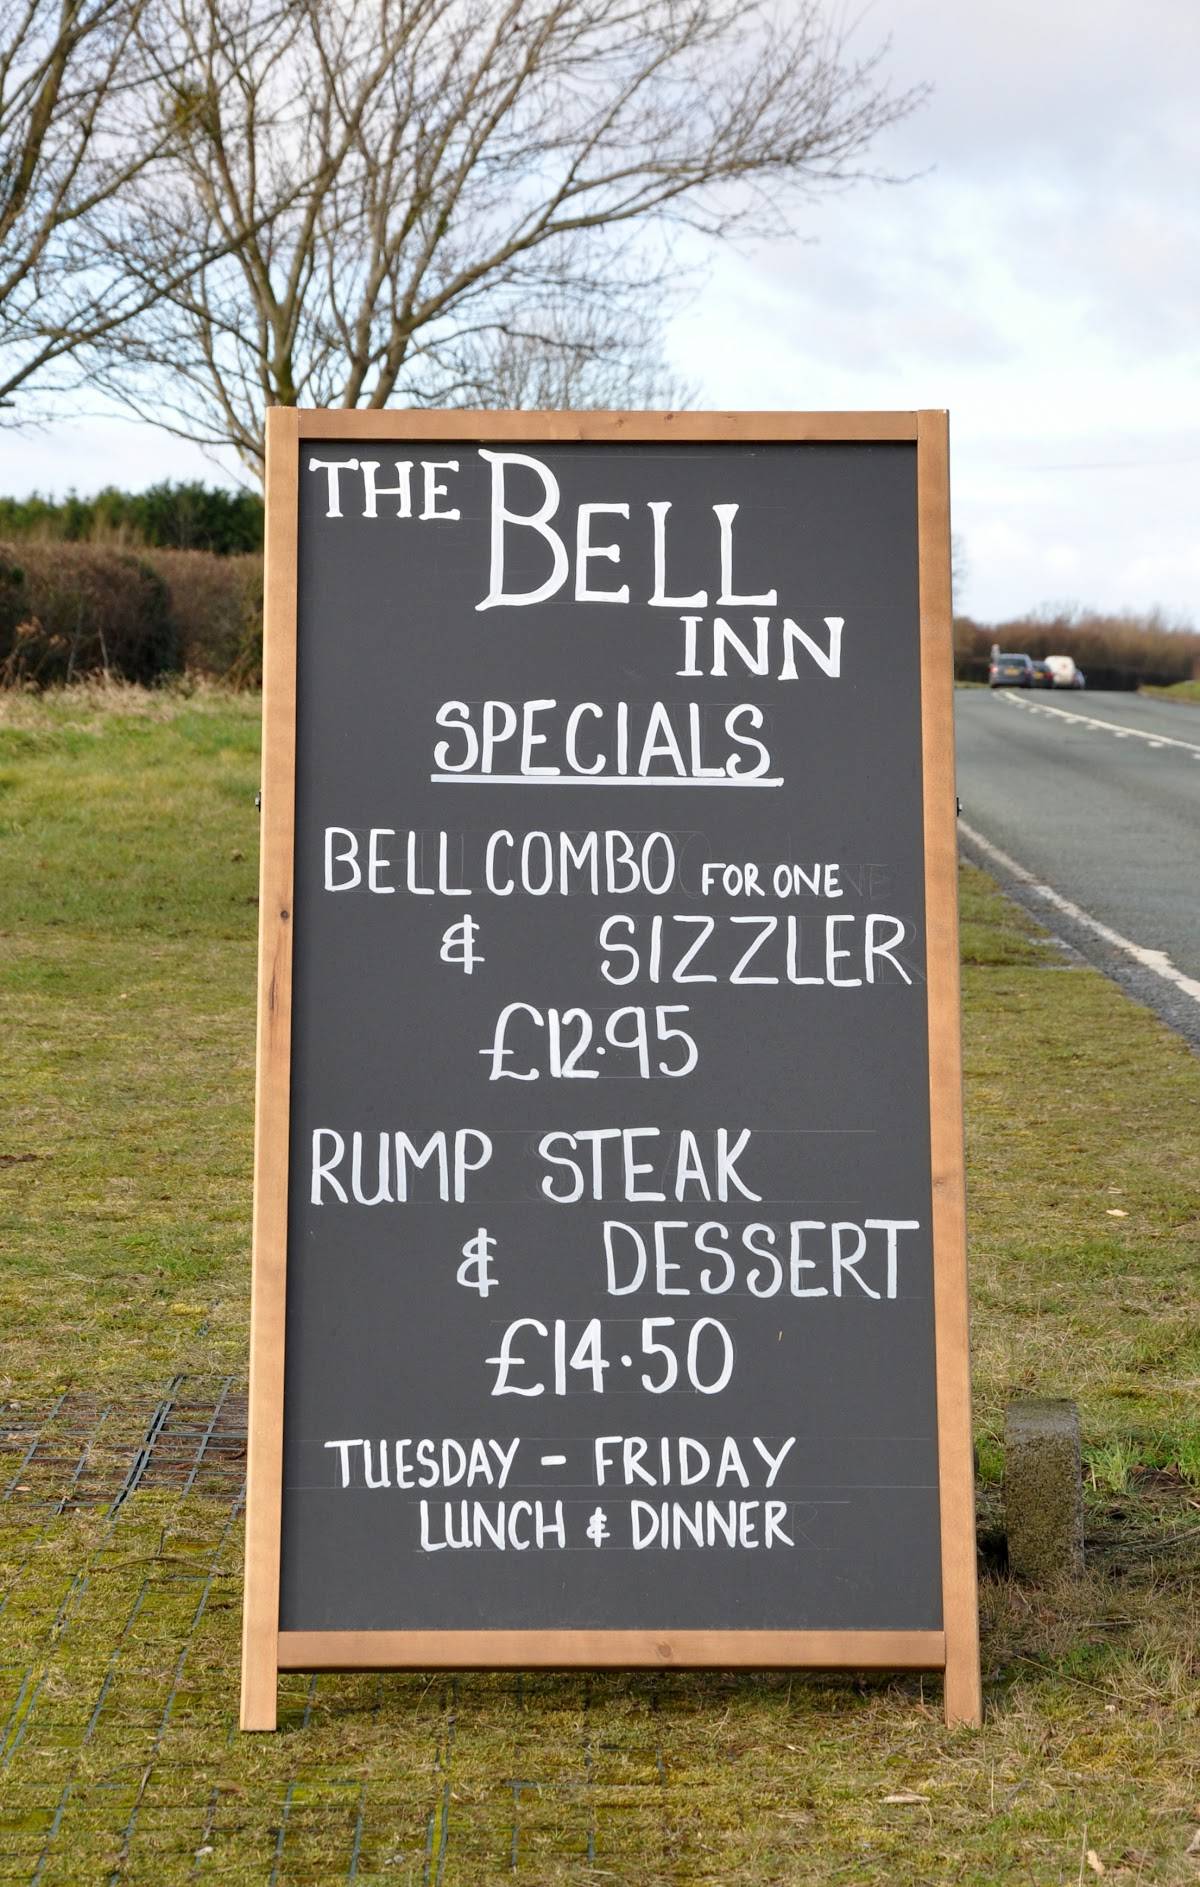 THE BELL
INN
SPECIALS
BELL COMBO FOR ONE
& SIZZLER
£12.95
RUMP STEAK
& DESSERT
£14.50
TUESDAY - FRIDAY
LUNCH & DINNER